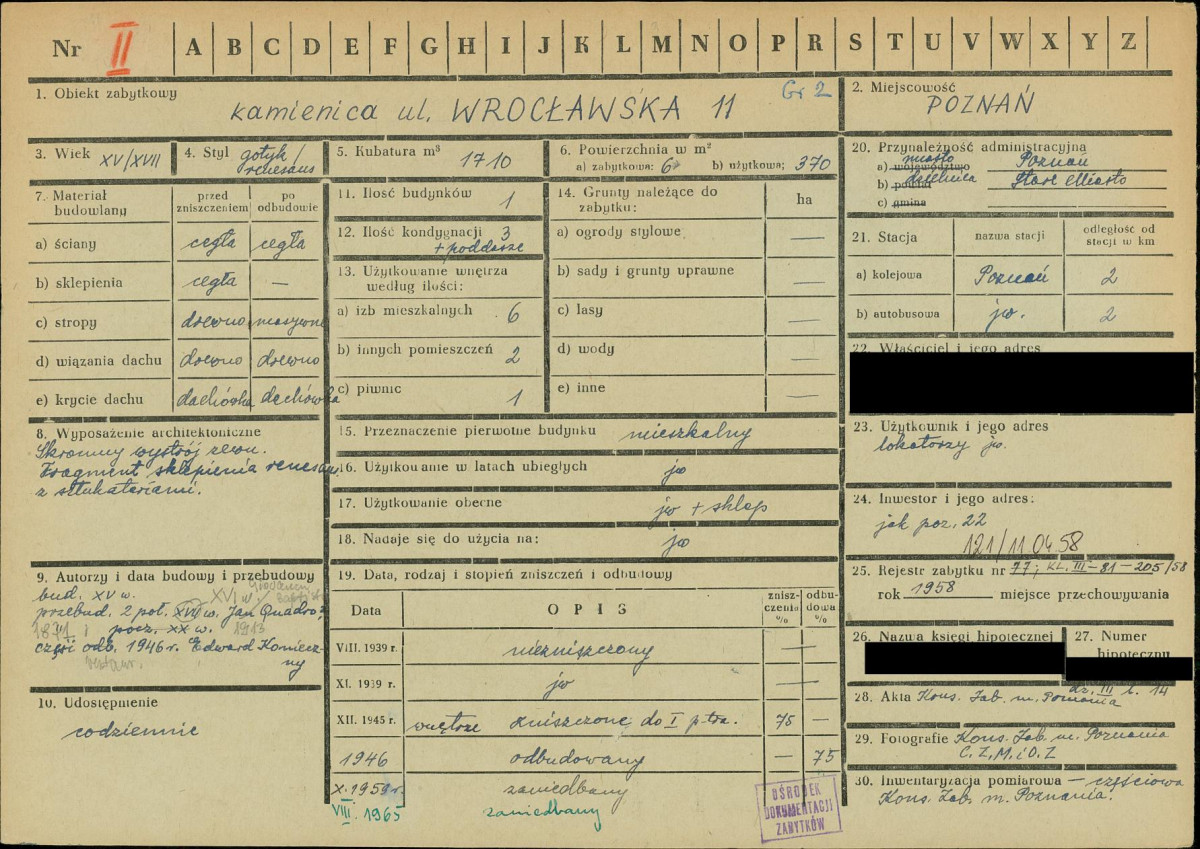 Nr II A B C D E F G H I J K L M N O P R S T U V W X Y Z
1. Obiekt zabytkowy
kamienica ul. WROCŁAWSKA 11
Gr 2
2. Miejscowość
POZNAŃ
3. Wiek XV/XVII
4. Styl gotyk/
renesans
5. Kubatura m³ 1710
6. Powierzchnia w m²
a) zabytkowa: b) użytkowa: 370
20. Przynależność administracyjna
a) województwo miasto Poznań
b) powiat dzielnica Stare Miasto
c) gmina
7. Materiał budowlany
przed zniszczeniem
po odbudowie
a) ściany cegła cegła
b) sklepienia cegła —
c) stropy drewno masywne
d) wiązania dachu drewno drewno
e) krycie dachu dachówka dachówka
8. Wyposażenie architektoniczne
Skromny wystrój zewn.
Fragment sklepienia renesans.
z sztukateriami.
9. Autorzy i data budowy i przebudowy
bud. XV w.
przebud. 2 poł. XVII w. XVI w. Jan Quadro?
1871 i pocz. XX w. 1913
część odb. 1946 r. Edward Koniecz-
restaur. ny
10. Udostępnienie
codziennie
11. Ilość budynków 1
12. Ilość kondygnacji 3
+ poddasze
13. Użytkowanie wnętrza
według ilości:
a) izb mieszkalnych 6
b) innych pomieszczeń 2
c) piwnic 1
14. Grunty należące do
zabytku:
ha
a) ogrody stylowe —
b) sady i grunty uprawne —
c) lasy —
d) wody —
e) inne —
15. Przeznaczenie pierwotne budynku mieszkalny
16. Użytkowanie w latach ubiegłych jw
17. Użytkowanie obecne jw + sklep
18. Nadaje się do użycia na: jw
19. Data, rodzaj i stopień zniszczeń i odbudowy
Data OPIS zniszczenia % odbudowa %
VIII. 1939 r. niezniszczony —
XI. 1939 r. jw —
XII. 1945 r. wnętrze zniszczone do I ptra. 75 —
1946 odbudowany — 75
X. 1959 r. zaniedbany
VIII. 1965 zaniedbany
21. Stacja
nazwa stacji
odległość od
stacji w km
a) kolejowa Poznań 2
b) autobusowa jw. 2
22. Właściciel i jego adres
23. Użytkownik i jego adres
lokatorzy jw.
24. Inwestor i jego adres:
jak poz. 22
121/11.04.58
25. Rejestr zabytku nr 77; KL. III-81-205/58
rok 1958 miejsce przechowywania
26. Nazwa księgi hipotecznej
27. Numer
hipoteczny
28. Akta Kons. Zab. m. Poznania
dz. III l. 14
29. Fotografie Kons. Zab. m. Poznania
C.Z.M. i O.Z
30. Inwentaryzacja pomiarowa — częściowa
Kons. Zab. m. Poznania.
OŚRODEK
DOKUMENTACJI
ZABYTKÓW